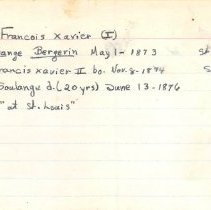 Francois Xavier (I)
ange Bergerin May 1 - 1873 St
ancis Xavier II bo. Nov. 8 - 1874 S
Soulange d. (20 yrs) June 13 - 1876
"at St. Louis"